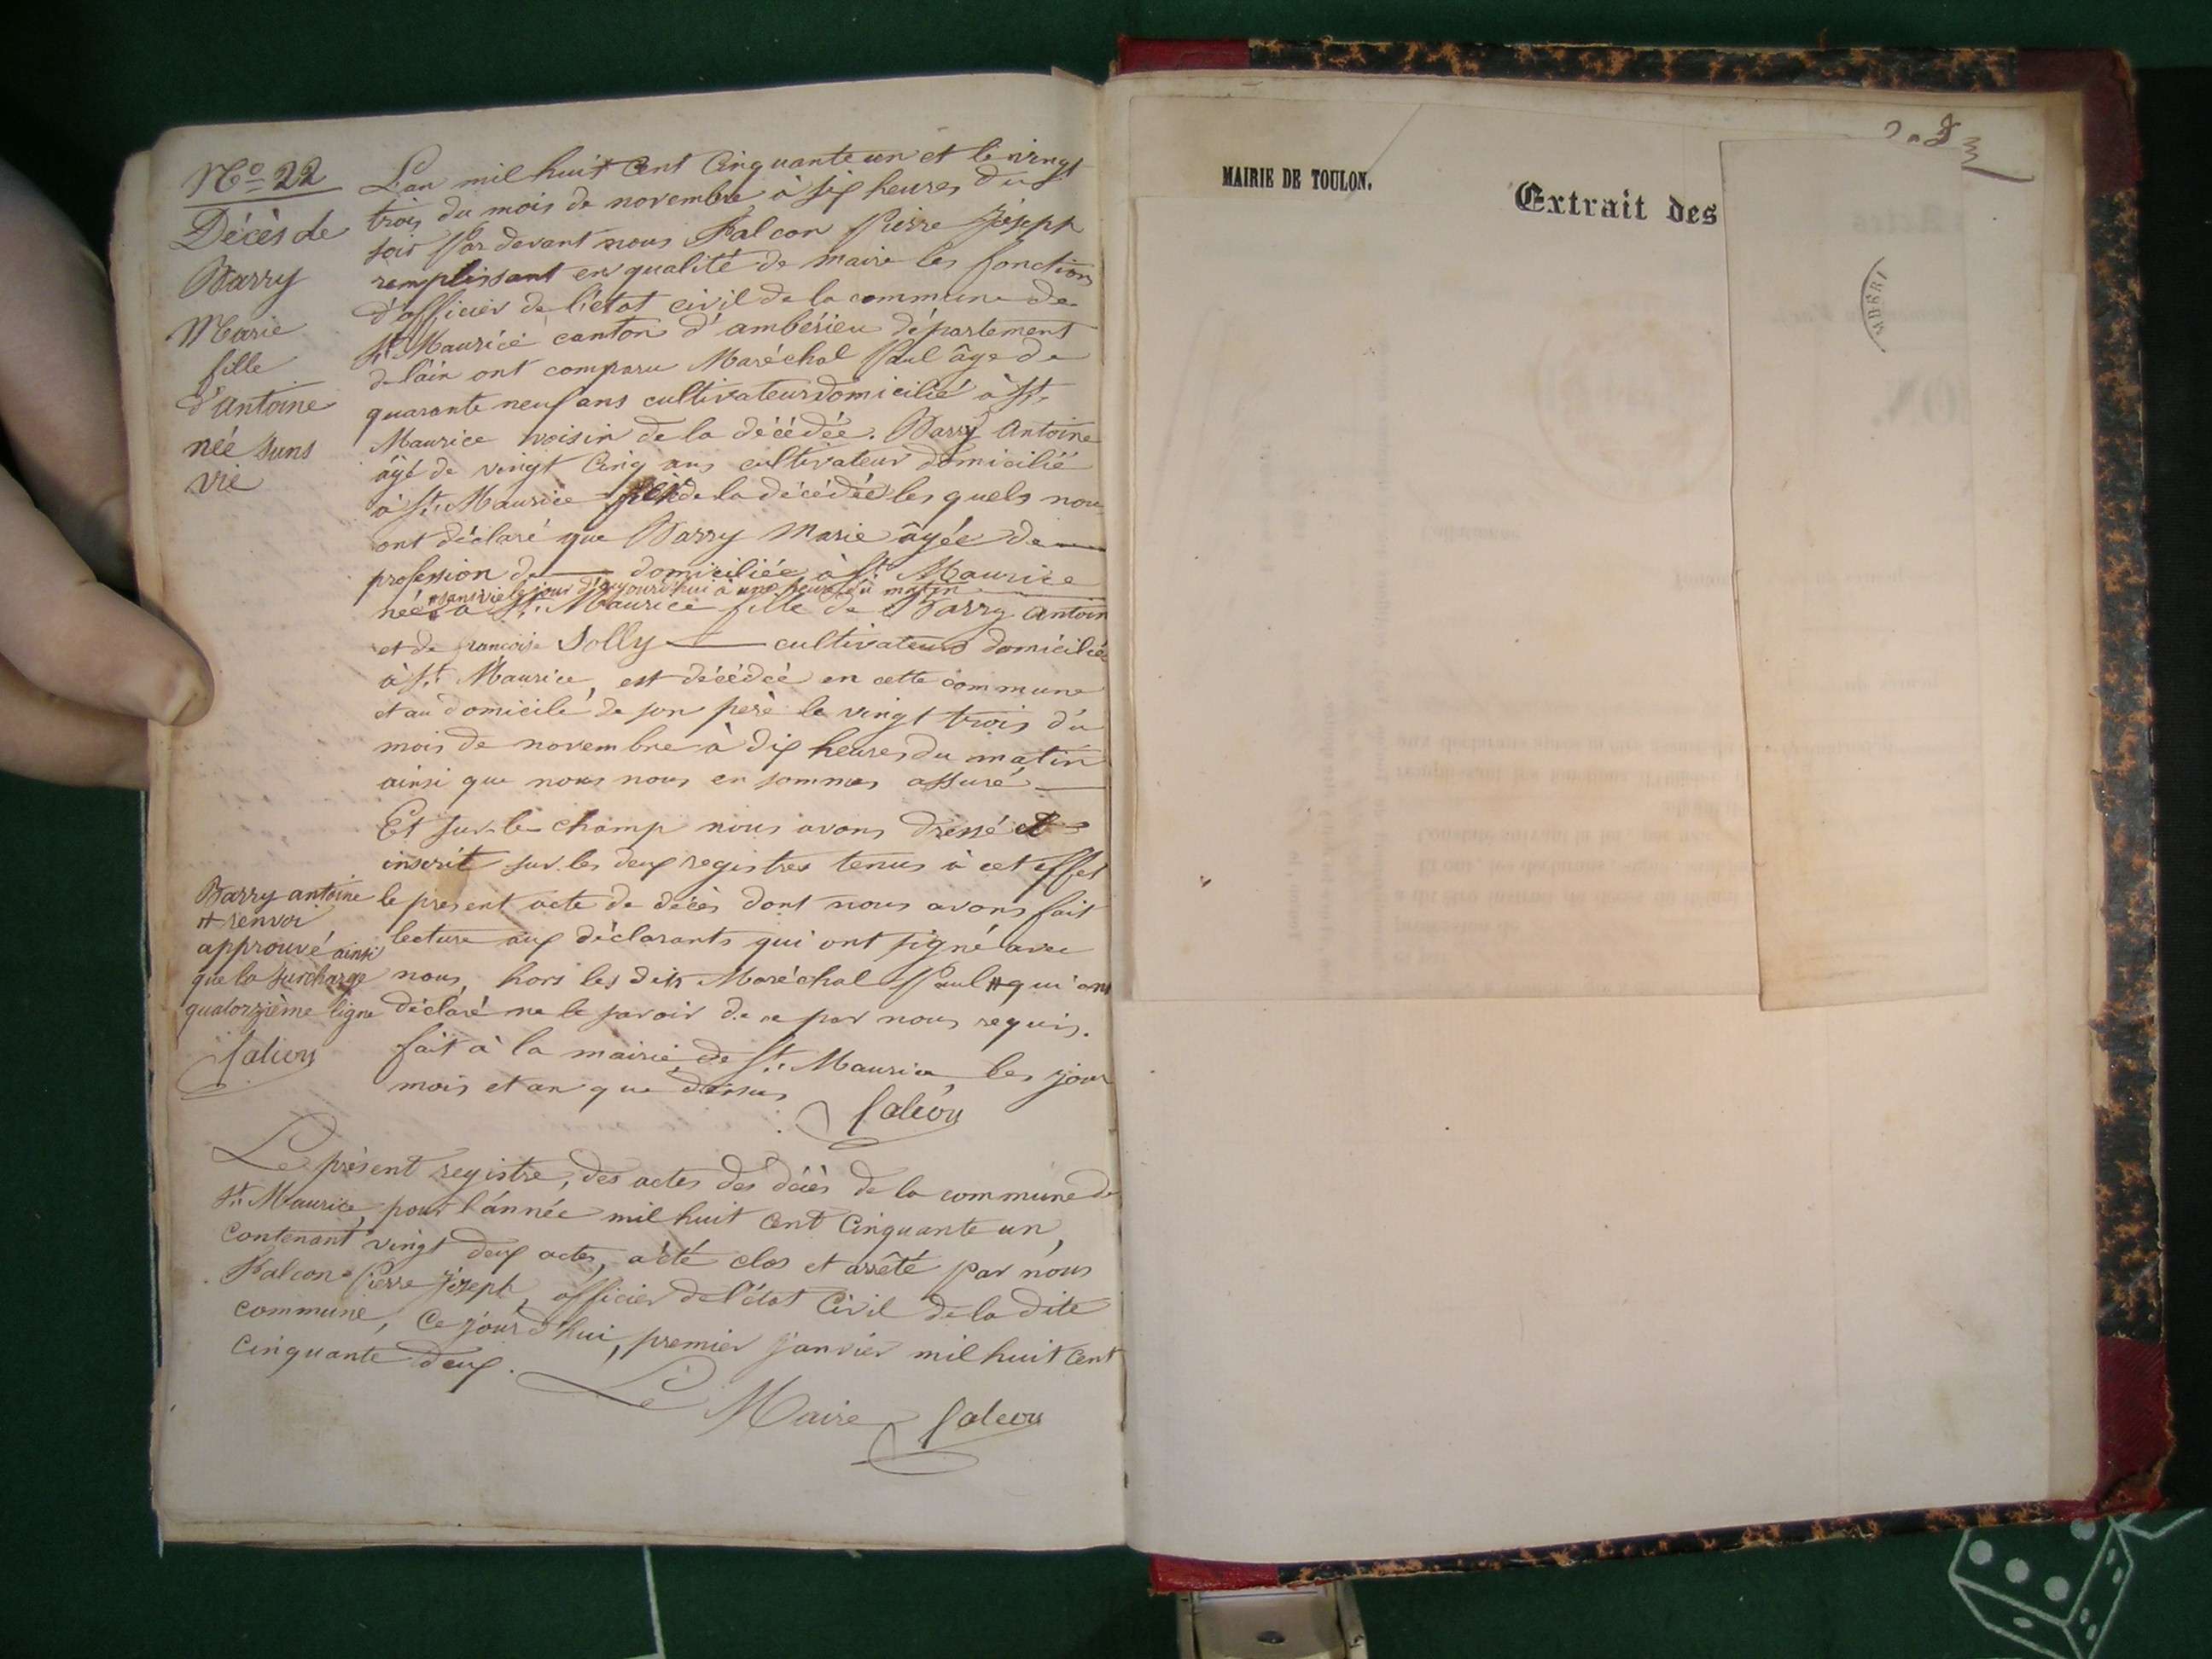 N° 22
Décès de
Barry
Marie
fille
d'Antoine
née sans
vie
L'an mil huit cent cinquante un et le vingt
trois du mois de novembre à six heures du
soir Par devant nous Falcon Pierre Joseph
remplissant en qualité de maire les fonctions
d'officier de l'état civil de la commune de
St. Maurice canton d'ambérieu département
de l'ain ont comparu Maréchal Paul âge de
quarante neuf ans cultivateur domicilié à St.
Maurice voisin de la décédée. Barry Antoine
âgé de vingt cinq ans cultivateur domicilié
à St. Maurice père de la décédée les quels nous
ont déclaré que Barry Marie âgée de
profession de domiciliée à St. Maurice
sans vie le jour d'aujourd'hui à une heure du matin
née à St. Maurice fille de Barry Antoin
et de francoise Jolly cultivateurs domiciliés
à St. Maurice, est décédée en cette commune
et au domicile de son père le vingt trois du
mois de novembre à dix heures du matin
ainsi que nous nous en sommes assuré
Et sur-le-champ nous avons dressé et
inscrit sur les deux registres tenus à cet effet
le present acte de décès dont nous avons fait
lecture aux déclarants qui ont signé avec
nous, hors les dits Maréchal Paul # qui ont
déclaré ne le savoir de ce par nous requis.
fait à la mairie de St. Maurice les jour
mois et an que dessus
falcon
Barry antoine
# renvoi
approuvé ainsi
que la surcharge
quatorzième ligne
falcon
Le présent registre, des actes des décès de la commune de
St. Maurice, pour l'année mil huit cent cinquante un,
contenant vingt deux actes, a été clos et arrêté par nous
Falcon Pierre Joseph, officier de l'état Civil de la dite
commune, Ce jourd'hui, premier janvier mil huit cent
cinquante deux.
Le Maire falcon
MAIRIE DE TOULON.
Extrait des